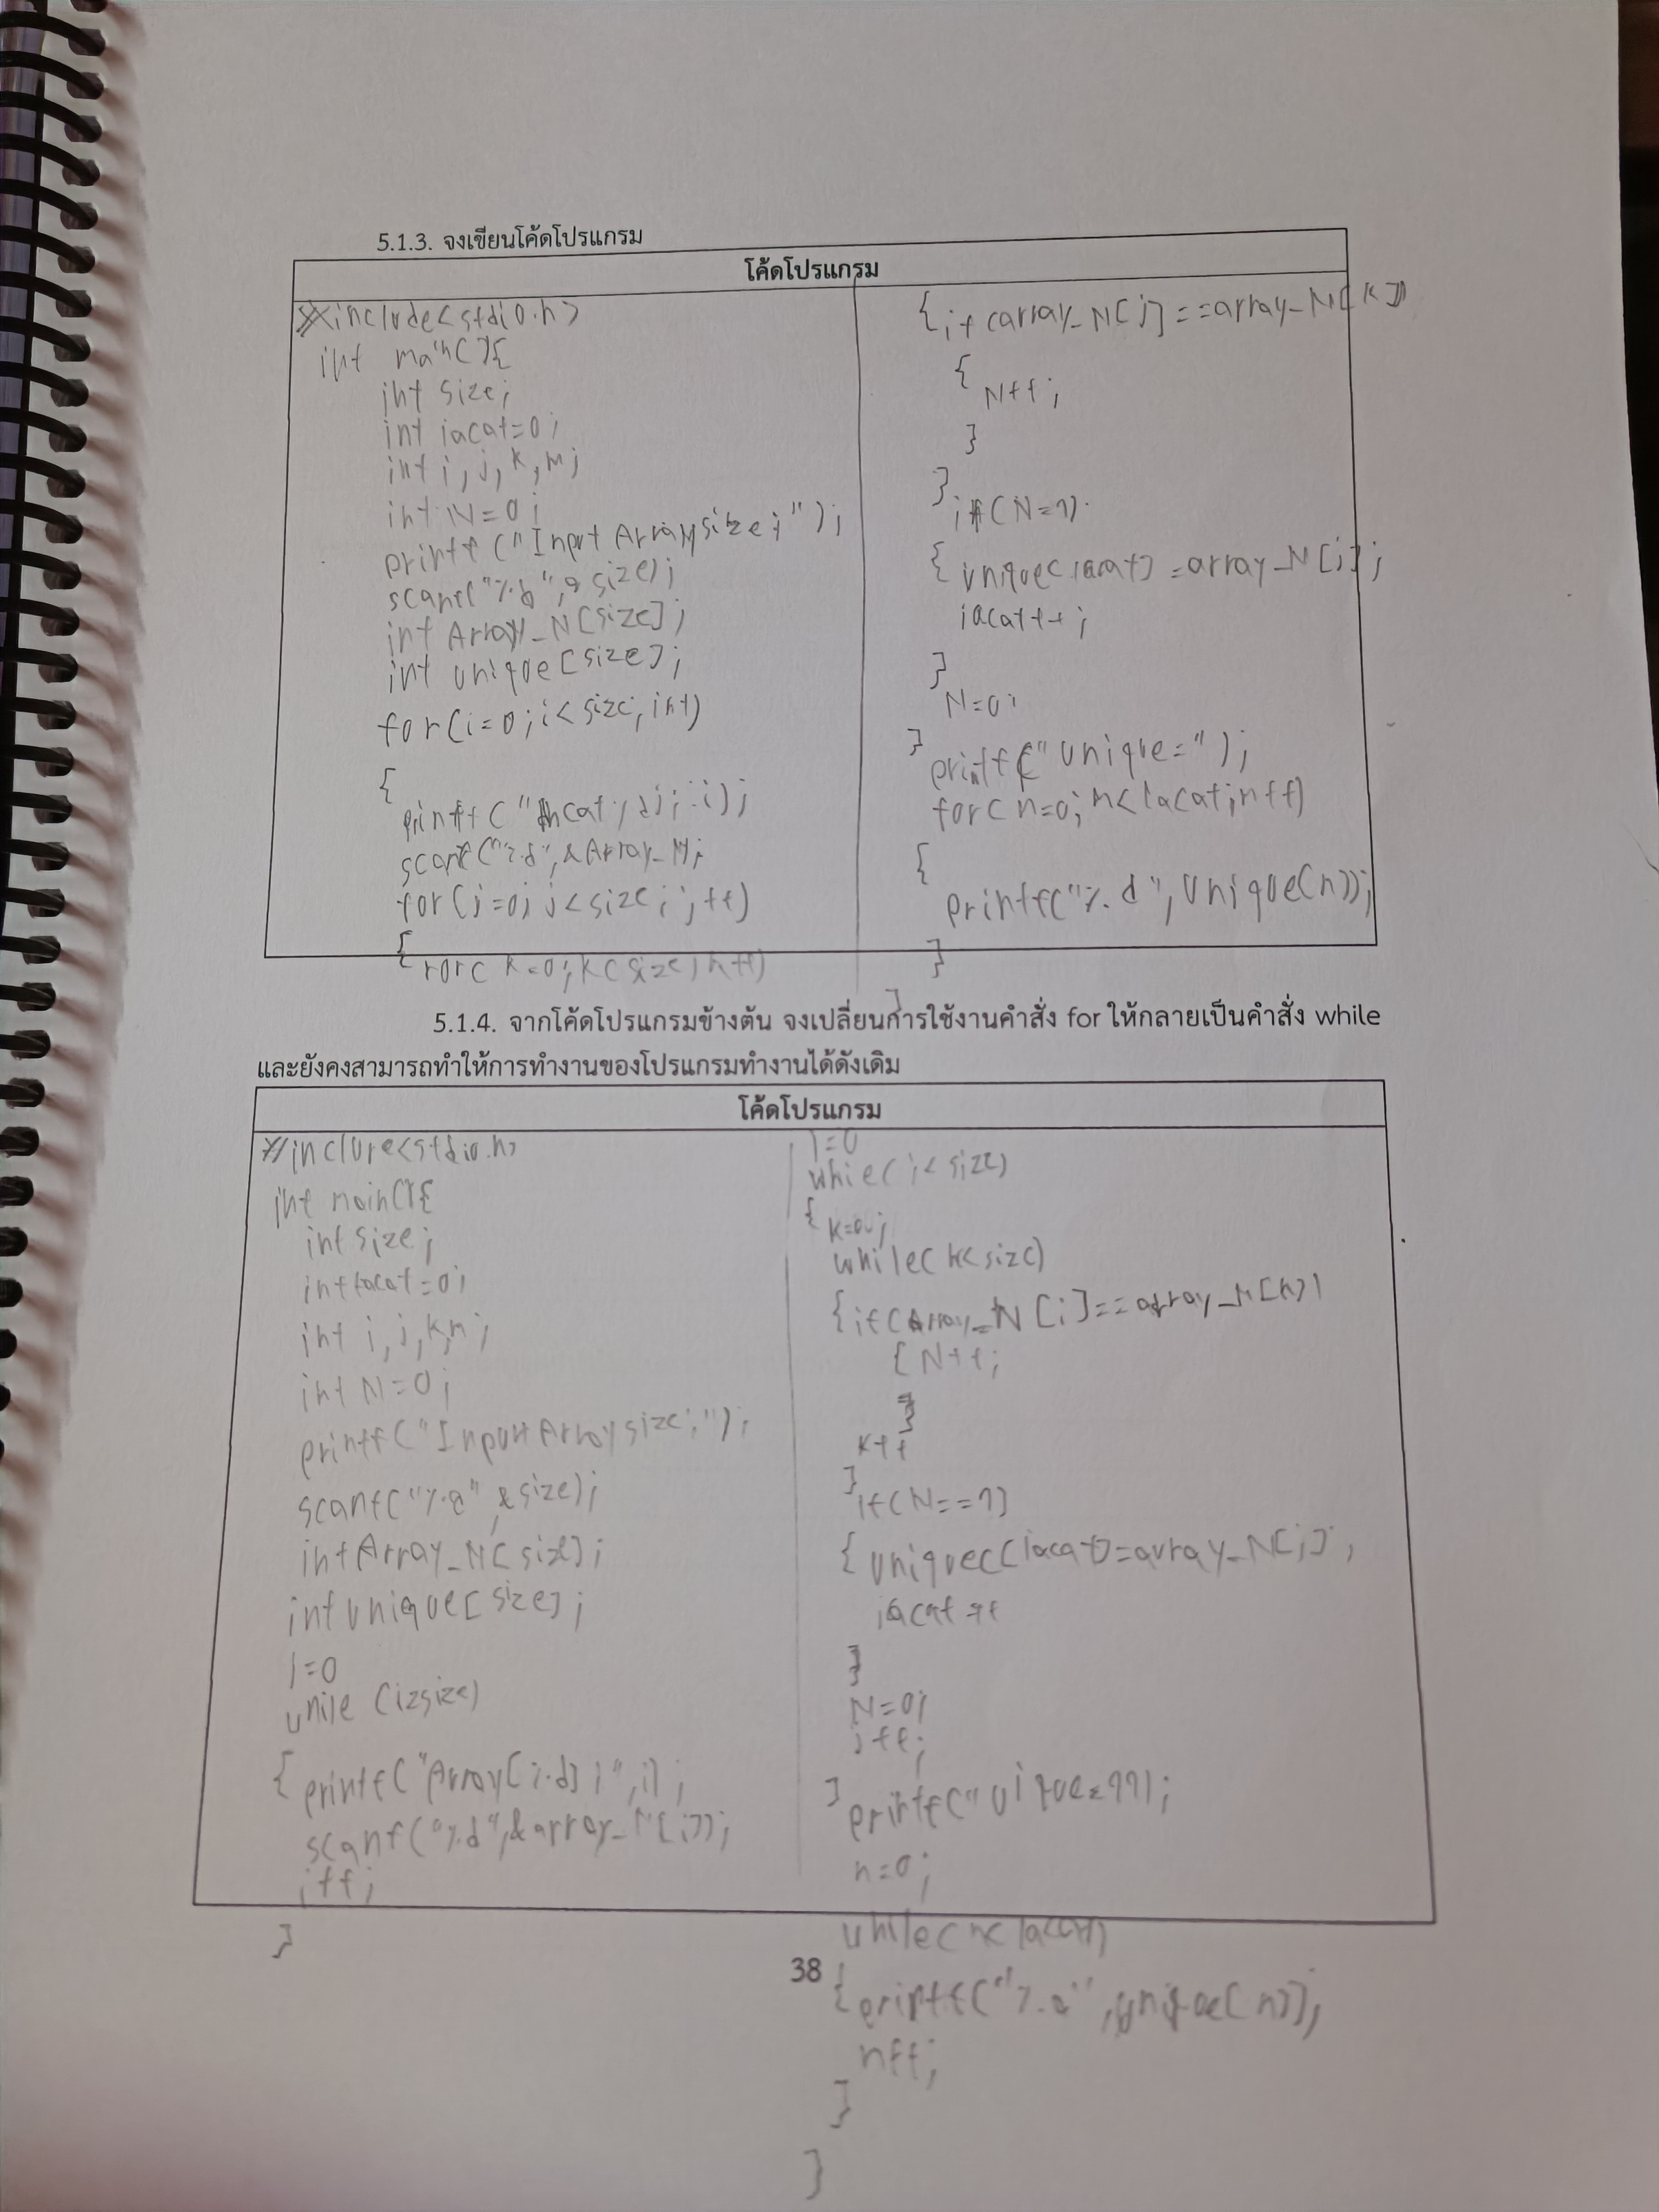 5.1.3. จงเขียนโค้ดโปรแกรม
โค้ดโปรแกรม
#include<stdio.h>
int main(){
int size;
int iacat=0;
int i, j, k, m;
int N=0;
printf ("Input Array size ; ");
scanf("%d",& size);
int Array_N[size];
int unique[size];
for(i=0; i<size; i++)
{
printf (
scanf("%d",&Array_N;
for(j=0; j<size; j++)
{
for( k=0; k<size; k++)
{if(array_N[j]==array_N[k])
{
N++;
}
}
if(N=1)
{ unique(iacat) =array_N[j];
iacat++;
}
N=0;
}
printf("unique=");
for( n=0; n<iacat;n++)
{
printf("%d", unique(n));
}
}
5.1.4. จากโค้ดโปรแกรมข้างต้น จงเปลี่ยนการใช้งานคำสั่ง for ให้กลายเป็นคำสั่ง while
และยังคงสามารถทำให้การทำงานของโปรแกรมทำงานได้ดังเดิม
โค้ดโปรแกรม
#inclure<stdio.h>
int main(){
int size;
int iacat=0;
int i, j, k,n;
int N=0;
printf("Input Array size;");
scanf("%d",&size);
int Array_N[size];
int unique[size];
i=0
while (i<size)
{ printf("Array[%d] ;",i);
scanf("%d",&array_N[i]);
i++;
}
j=0
whie(j<size)
{ k=0;
while(k<size)
{if(Array_N[j]==array_N[k])
{ N++;
}
k++
}
if(N==1)
{ unique((iacat)=array_N[j];
iacat++
}
N=0;
j++;
}
printf("uique=");
n=0;
while(n<iacat)
{printf("%d",unique[n]);
n++;
}
}
38